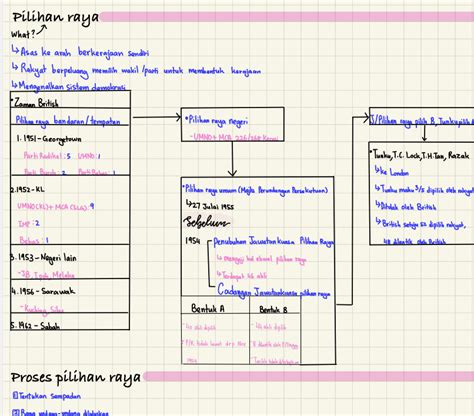 Pilihan raya
What?
↳ Asas ke arah berkerajaan sendiri
↳ Rakyat berpeluang memilih wakil/parti untuk membentuk kerajaan
↳ Mengenalkan sistem demokrasi
• Zaman British
Pilihan raya bandaran/tempatan
1. 1951 - Georgetown
Parti Radikal: 5 UMNO: 1
Parti Buruh: 2 Parti Bebas: 1
2. 1952 - KL
UMNO(KL) + MCA (SLG): 9
IMP: 2
Bebas: 1
3. 1953 - Negeri lain
- JB, Melaka
4. 1956 - Sarawak
- Kuching, Sibu
5. 1962 - Sabah
• Pilihan raya negeri
- UMNO + MCA 226/268 Kerusi
• Pilihan raya umum (Majlis Perundangan Persekutuan)
↳ 27 Julai 1955
Sebelum
1954
Penubuhan Jawatankuasa Pilihan Raya
↳ mengkaji hal ehwal pilihan raya
↳ Terdapat ahli
Cadangan Jawatankuasa pilihan raya
Bentuk A
Bentuk B
- ahli dipilih
- ahli dipilih
J/Pilihan raya pilih B, Tunku
• Tunku, T.C. Lock, T.H Tan, Razak
↳ ke London
↳ Tunku mahu 3/5 dipilih oleh rakyat
↳ Ditolak oleh British
↳ British setuju 52 dipilih oleh rakyat,
dilantik oleh British
Proses pilihan raya
1 Tentukan Sempadan
2